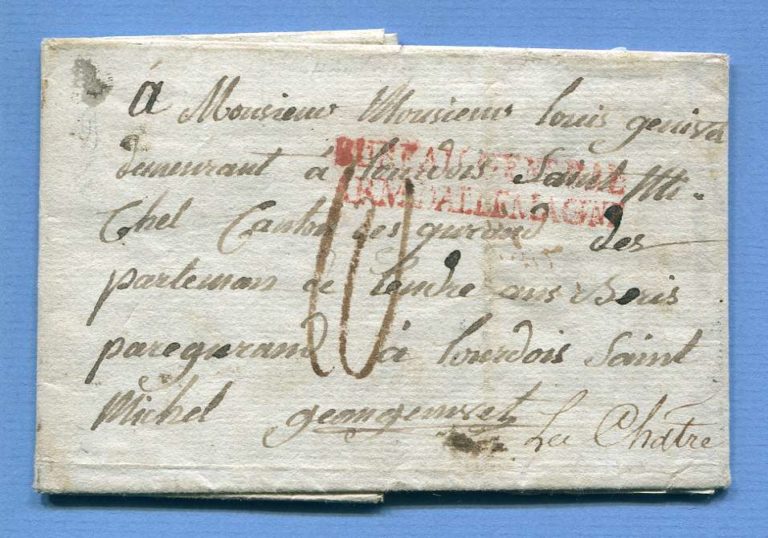 à Monsieur Monsieur louis genivet
demeurant à lourdois Saint Mi-
Chel Canton des gurand des
parteman de lendre ans Beris
paregurand à lourdois Saint
Michel geangenivet La Châtre
BUREAU GENERAL
ARM. D'ALLEMAGNE
10